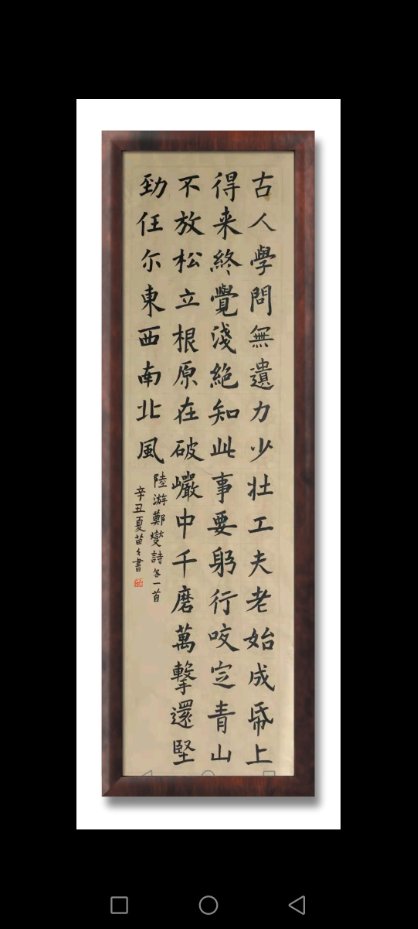 古人學問無遺力少壮工夫老始成帋上
得来終覺淺絶知此事要躬行咬定青山
不放松立根原在破巖中千磨萬擊還堅
勁任尔東西南北風
陸游鄭燮詩各一首
辛丑夏苗書